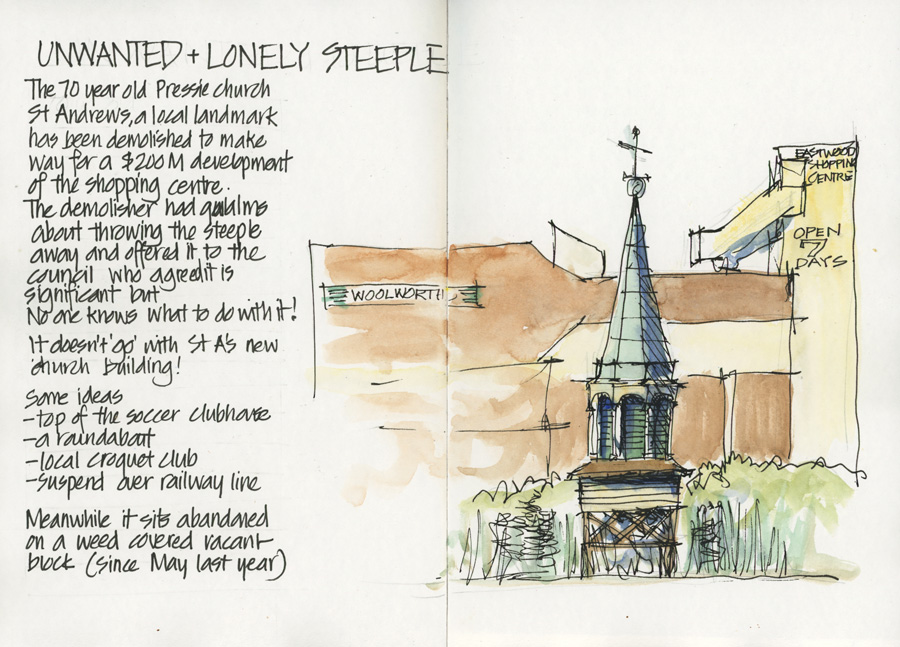 UNWANTED + LONELY STEEPLE
The 70 year old Pressie church
St Andrew's, a local landmark
has been demolished to make
way for a $200M development
of the shopping centre.
The demolisher had qualms
about throwing the steeple
away and offered it to the
council who agreed it is
significant but
No one knows what to do with it!
It doesn't 'go' with St A's new
church building!
Some ideas
-top of the soccer clubhouse
-a roundabout
-local croquet club
-suspend over railway line
Meanwhile it sits abandoned
on a weed covered vacant
block (since May last year)
WOOLWORTHS
EASTWOOD
SHOPPING
CENTRE
OPEN
7
DAYS